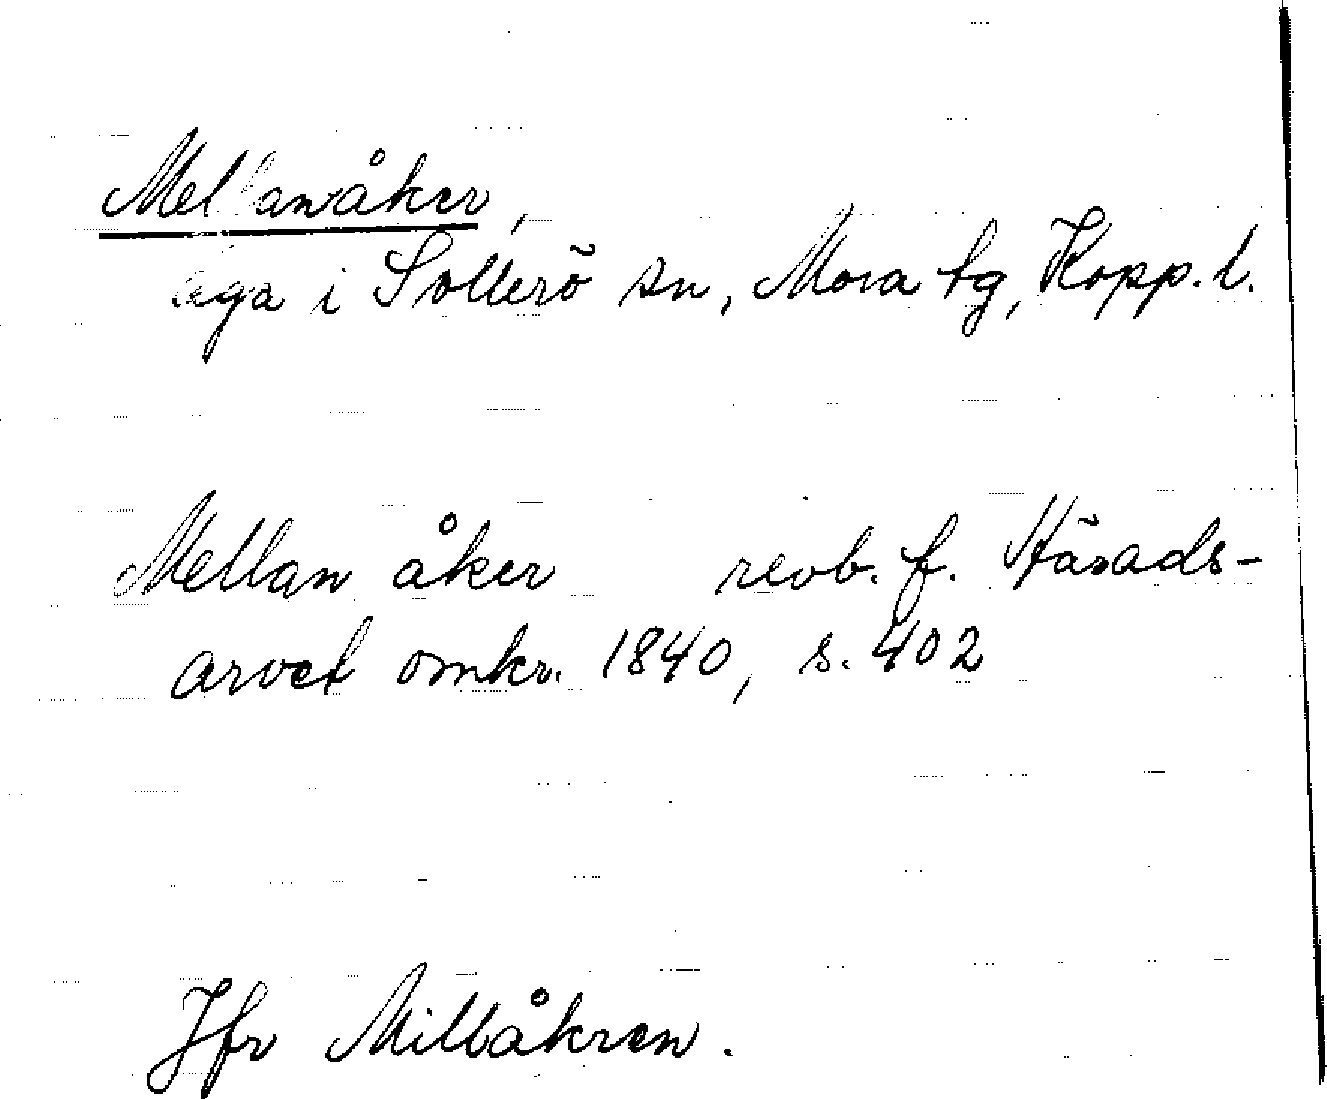 Mellanåker,
äga i Sollerö sn, Mora tg, Kopp. l.
Mellan åker revb. f. Häsads-
arvet omkr. 1840, s. 402
Jfr Millåkren.